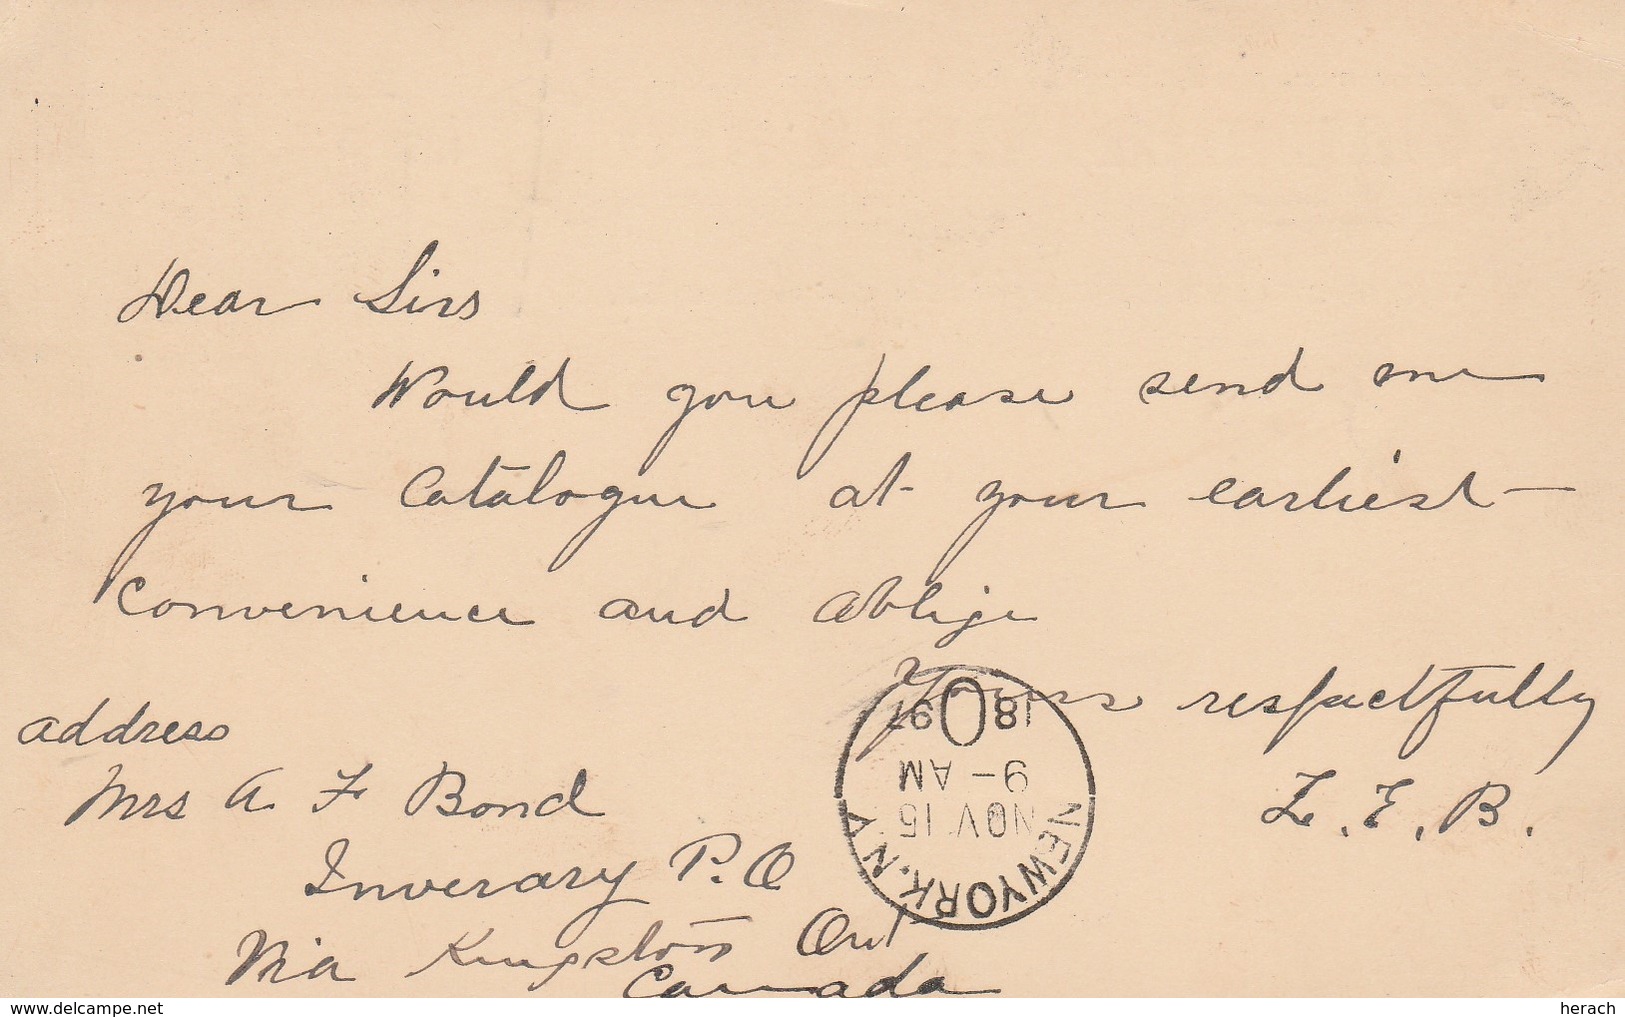 Dear Sirs
Would you please send me
your Catalogue at your earliest
convenience and oblige
Yours respectfully
L. E. B.
address
Mrs A F Bond
Inverary P.O
Via Kingston Ont
Canada
NEW YORK, N.Y.
NOV 15
9-AM
1897
www.delcampe.net
herach